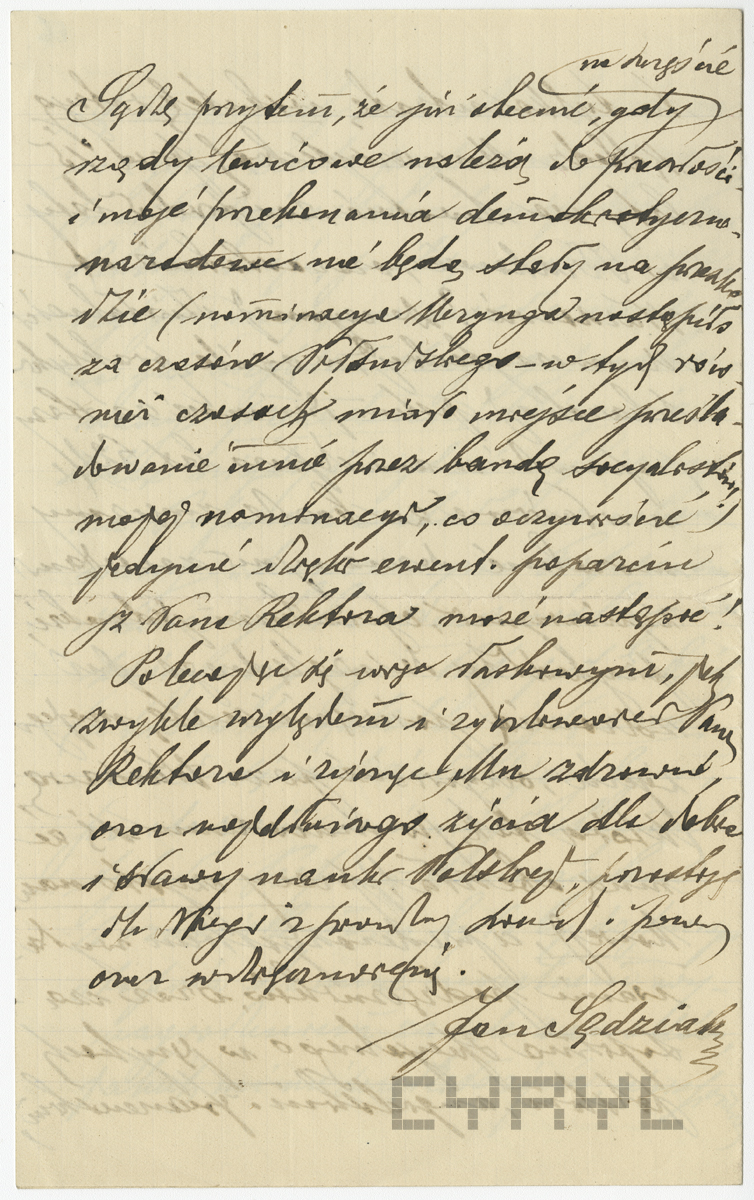 na szczęście
Sądzę przytem, że już obecnie, gdy
rządy lewicowe należą do przeszłości
i moje przekonania demokratyczno-
narodowe nie będą stały na przeszko
dzie (nominacya Merynga nastąpiła
za czasów Piłsudskiego – w tych rów-
nież czasach miało miejsce prześla-
dowanie mnie przez bandę socyalistów!)
mojej nominacyi, co oczywiście
jedynie dzięki ewent. poparciu
JP Pana Rektora może nastąpić!
Polecając się Jego łaskawym, jak
zwykle względom i życzliwości Pana
Rektora i życząc Mu zdrowia,
oraz najdłuższego życia dla dobra
i sławy nauki Polskiej, pozostaję
dla Niego z prawdziwym
oraz wdzięcznością.
Jan Sędziak
CYRYL